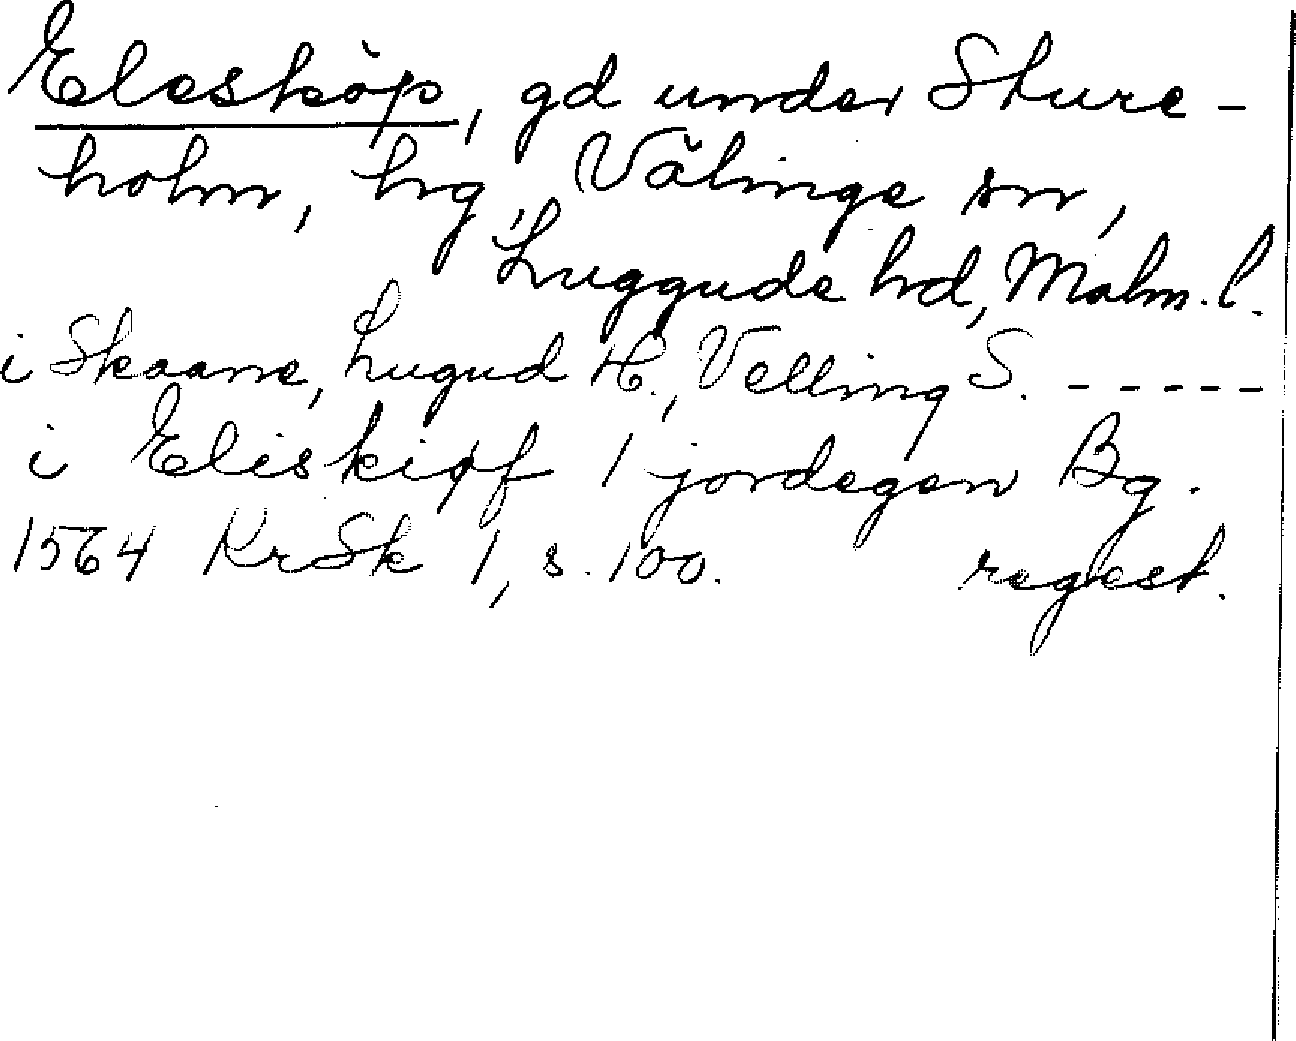 Eleshöp, gd under Sture-
holm, hg, Välinge sn,
Luggude hd, Malm. l.
i Skaane, Lugud H., Velling S. - - - - -
i Eliskiøf 1 jordegen Bg.
1564 KrSk 1, s. 100. regest.